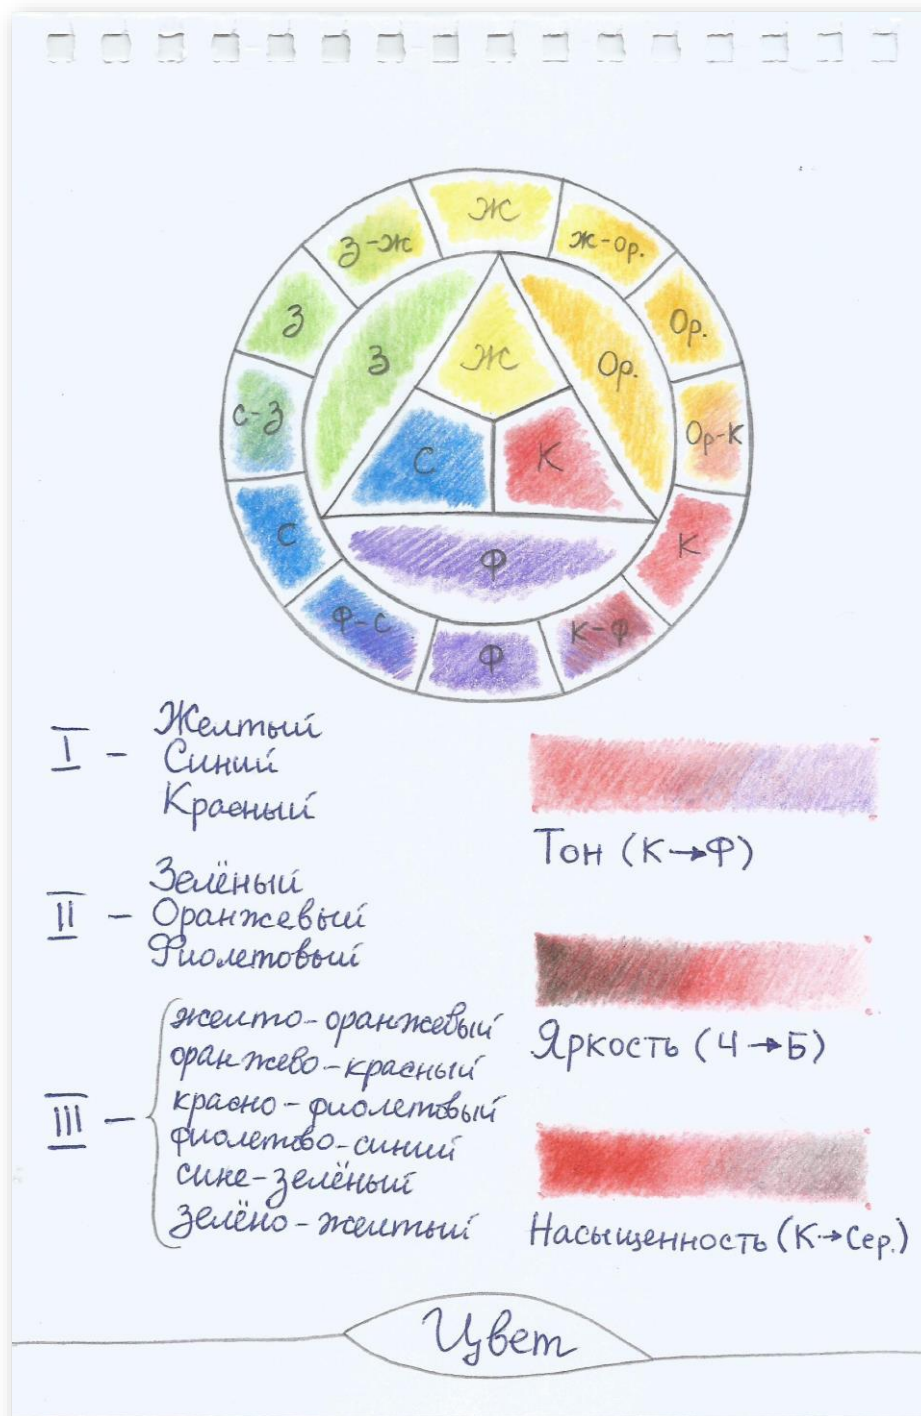 Ж
Ж-Ор.
Ор.
Ор-К
К
К-Ф
Ф
Ф-С
С
С-З
З
З-Ж
З
Ж
Ор.
С
К
Ф
I - Желтый
Синий
Красный
Тон (К→Ф)
II - Зелёный
Оранжевый
Фиолетовый
Яркость (Ч→Б)
III - желто-оранжевый
оранжево-красный
красно-фиолетовый
фиолетво-синий
сине-зелёный
зелёно-желтый
Насыщенность (К→Сер.)
Цвет